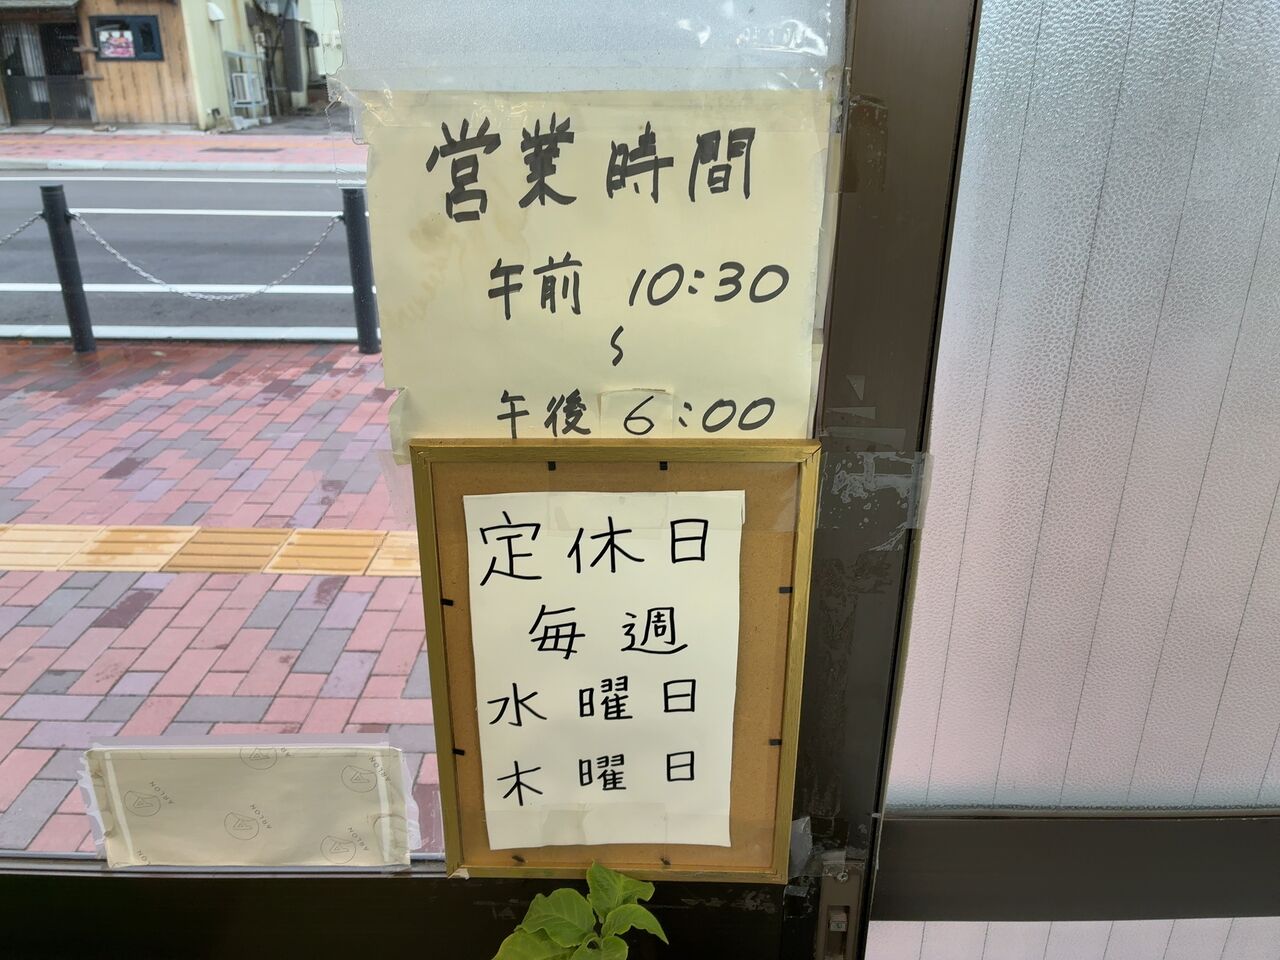 営業時間
午前 10:30
〜
午後 6:00
定休日
毎週
水曜日
木曜日
ARLON
ARLON
ARLON
ARLON
ARLON